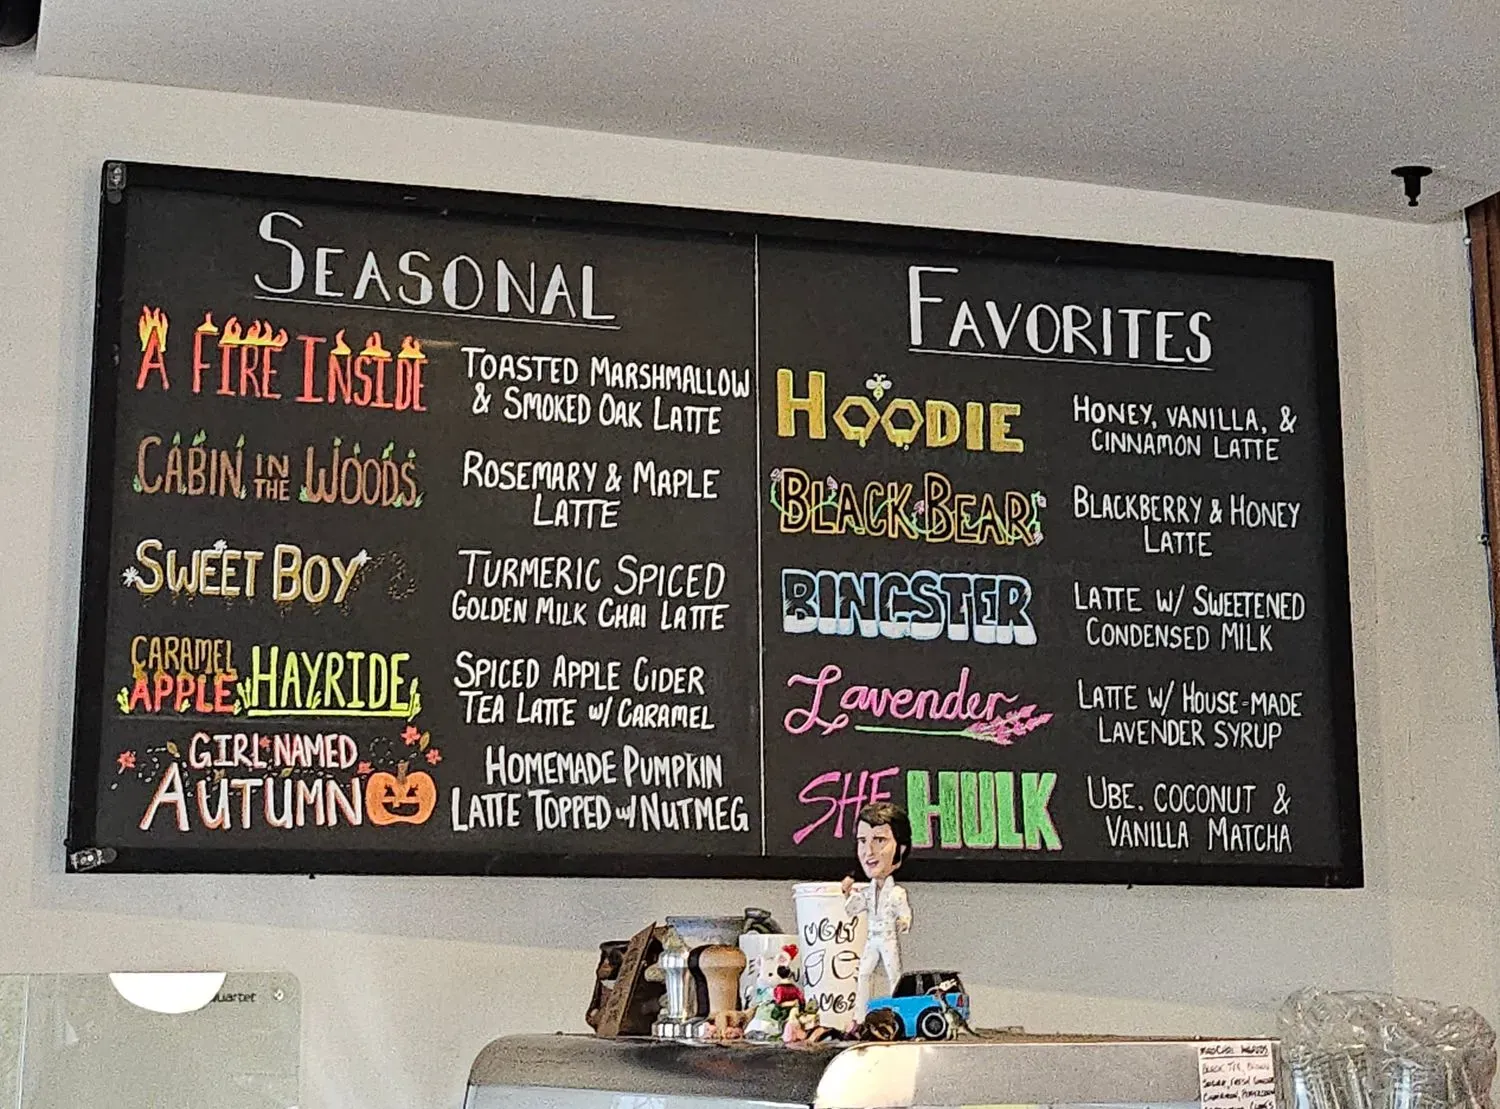 SEASONAL
A FIRE INSIDE
TOASTED MARSHMALLOW
& SMOKED OAK LATTE
CABIN IN THE WOODS
ROSEMARY & MAPLE
LATTE
SWEET BOY
TURMERIC SPICED
GOLDEN MILK CHAI LATTE
CARAMEL
APPLE HAYRIDE
SPICED APPLE CIDER
TEA LATTE W/ CARAMEL
GIRL NAMED
AUTUMN
HOMEMADE PUMPKIN
LATTE TOPPED W/ NUTMEG
FAVORITES
HOODIE
HONEY, VANILLA, &
CINNAMON LATTE
BLACK BEAR
BLACKBERRY & HONEY
LATTE
BINGSTER
LATTE W/ SWEETENED
CONDENSED MILK
Lavender
LATTE W/ HOUSE-MADE
LAVENDER SYRUP
SHE HULK
UBE, COCONUT &
VANILLA MATCHA
UGLY
MUGS
BLACK TEA, BROWN